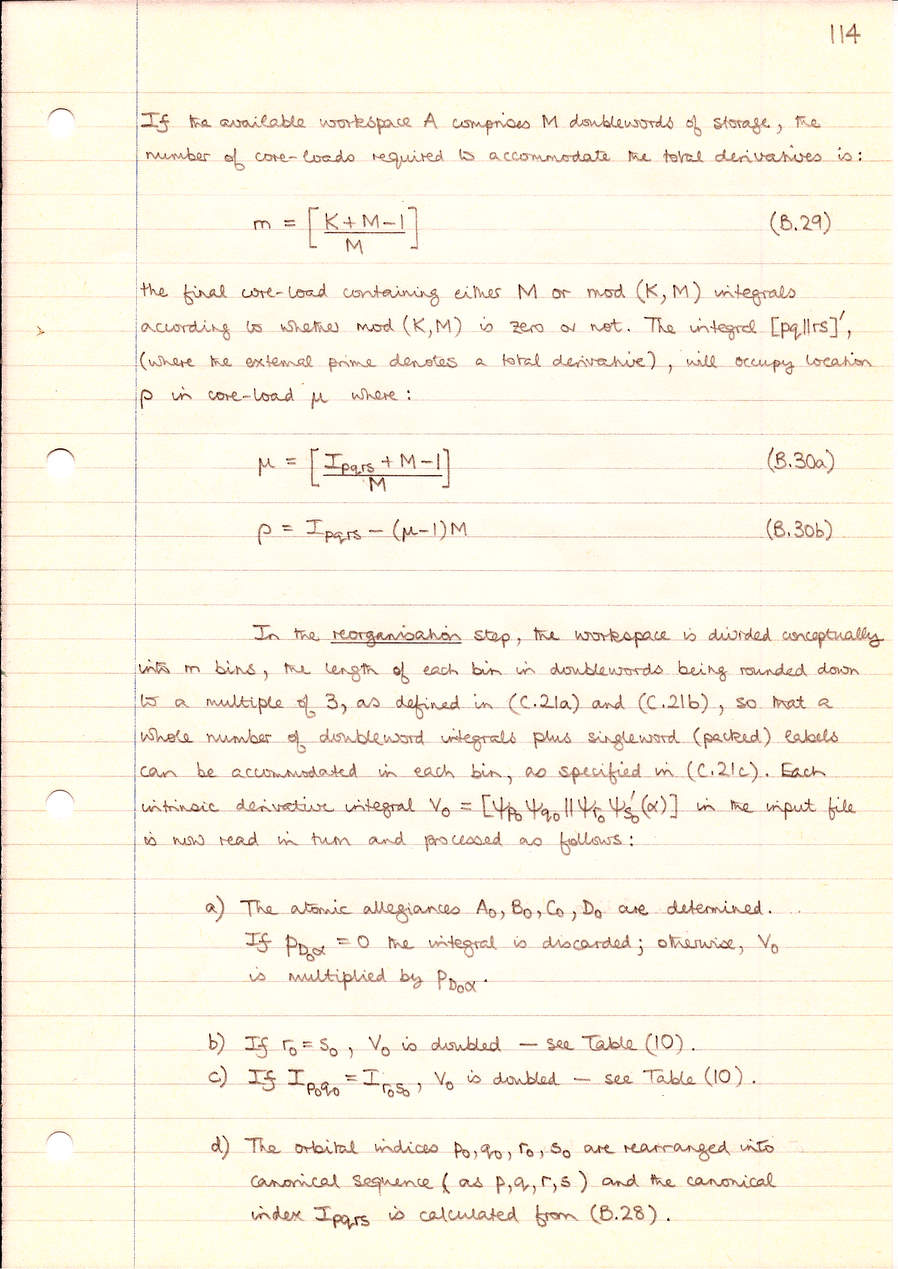 114
If the available workspace A comprises M doublewords of storage, the
number of core-loads required to accommodate the total derivatives is:
m = [ (K + M − 1) / M ] (B.29)
the final core-load containing either M or mod (K, M) integrals
according to whether mod (K, M) is zero or not. The integral [pq||rs]′,
(where the external prime denotes a total derivative), will occupy location
ρ in core-load μ where:
μ = [ (I_pqrs + M − 1) / M ] (B.30a)
ρ = I_pqrs − (μ−1)M (B.30b)
In the reorganisation step, the workspace is divided conceptually
into m bins, the length of each bin in doublewords being rounded down
to a multiple of 3, as defined in (C.21a) and (C.21b), so that a
whole number of doubleword integrals plus singleword (packed) labels
can be accommodated in each bin, as specified in (C.21c). Each
intrinsic derivative integral V₀ = [ψ_p₀ ψ_q₀ || ψ_r₀ ψ′_s₀(α)] in the input file
is now read in turn and processed as follows:
a) The atomic allegiances A₀, B₀, C₀, D₀ are determined.
If p_D₀α = 0 the integral is discarded; otherwise, V₀
is multiplied by p_D₀α.
b) If r₀ = s₀, V₀ is doubled — see Table (10).
c) If I_p₀q₀ = I_r₀s₀, V₀ is doubled — see Table (10).
d) The orbital indices p₀, q₀, r₀, s₀ are rearranged into
canonical sequence (as p, q, r, s) and the canonical
index I_pqrs is calculated from (B.28).